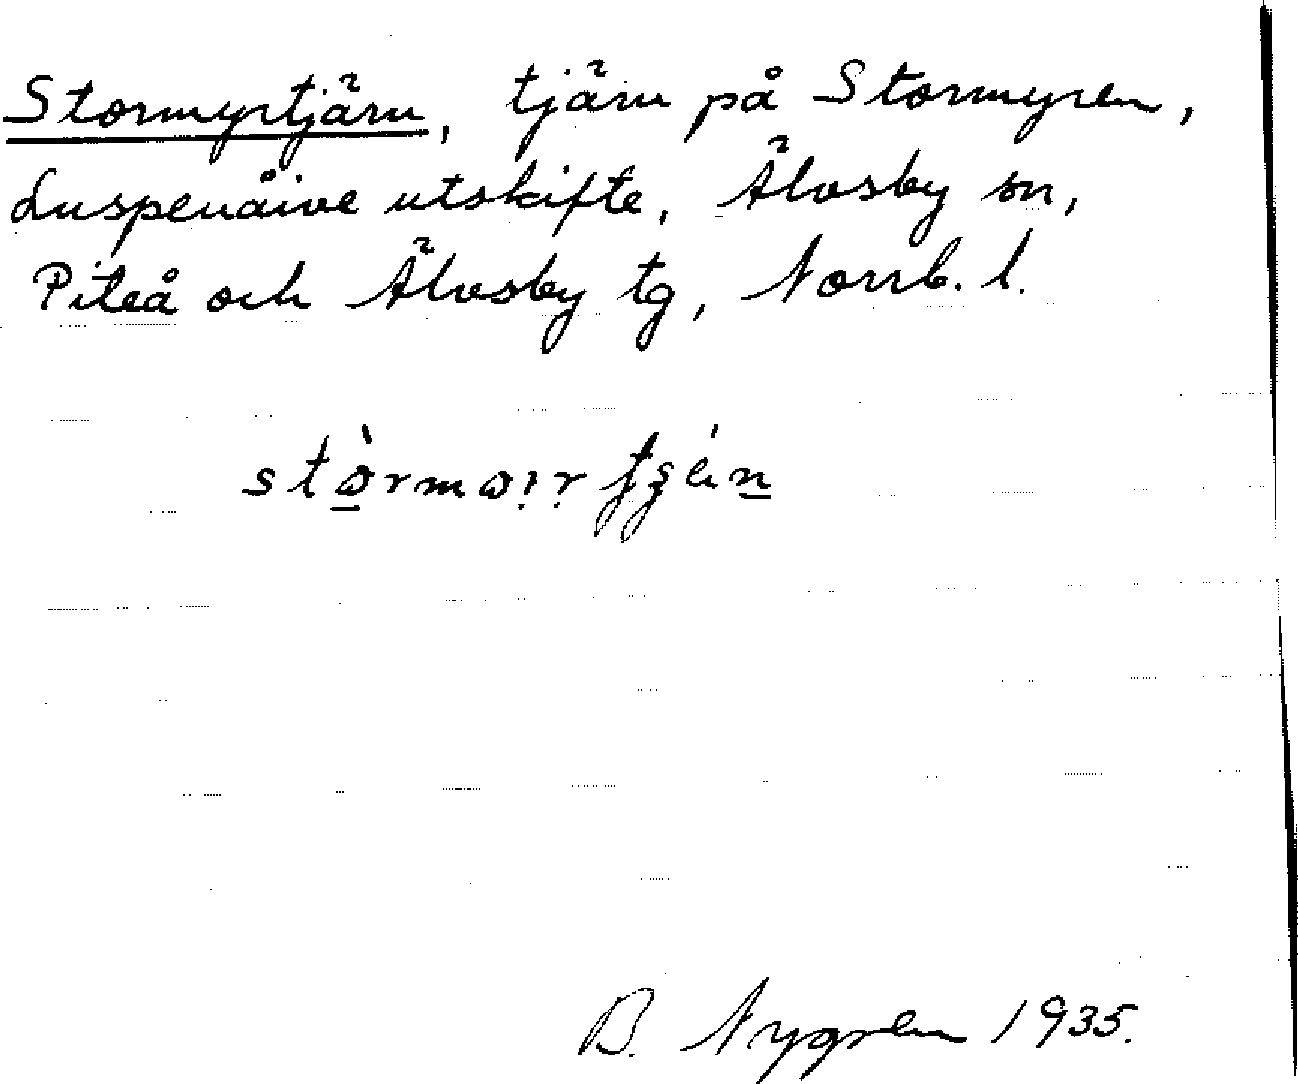 Stormyrtjärn, tjärn på Stormyren,
Luspenåive utskifte, Älvsby sn,
Piteå och Älvsby tg, Norrb. l.
B. Nygren 1935.